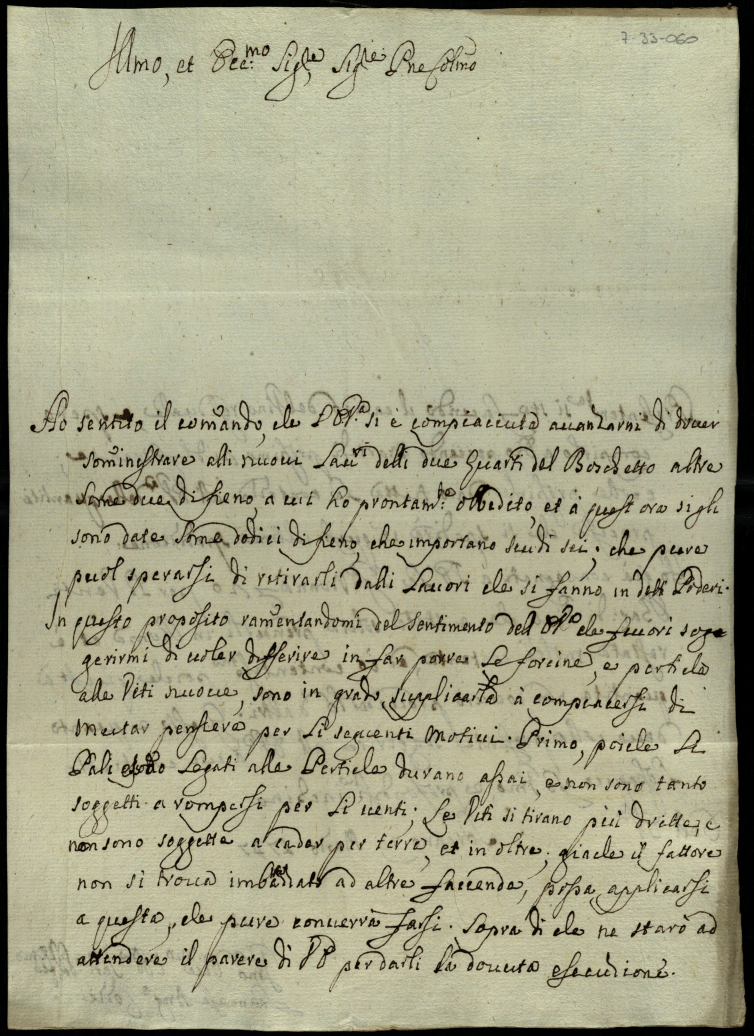 7-33-060
Illmo, et Ecc:mo Sigre, Sigre Pne Colmo
Ho sentito il comando, che V.E. si è compiaciuta avanzarmi di dover
somministrare alli nuovi Lavri delli due Quarti del Boschetto altre
some due di fieno, a cui ho prontamte obbedito, et à quest ora si gli
sono date some dodici di fieno, che importano scudi sei; che pure
puol sperarsi di ritirarli dalli Lavori che si fanno in detti Poderi.
In questo proposito ramentandomi del sentimento dell' che favorì sog
gerirmi di voler differire in far porre le forcine, e pertiche
alle Viti nuove, sono in grado supplicarla à compiacersi di
mutar pensiere per li seguenti motivi. Primo, poiche li
Pali legati alle Pertiche durano assai, e non sono tanto
soggetti a rompersi per li venti; Le Viti si tirano più dritte, e
non sono soggette a cader per terra, et in oltre, giache il fattore
non si trova ad altre faccende, possa applicarsi
a questa, che pure converrà farsi. Sopra di che ne starò ad
attendere il parere di per darli la dovuta esecuzione.